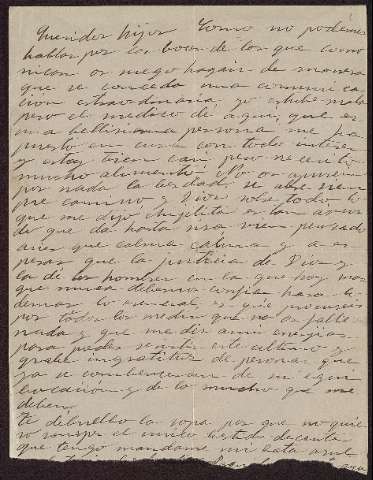 Queridos hijos Como no podemos
hablar por la boca de los que comu
nican os ruego hagáis de manera
que se conceda una comunica
ción extraordinaria, yo estube mala
pero el medico de aqui, que es
una bellisima persona me ha
puesto en cura con todo interes
y estoy bien casi, pero necesito
mucho alimento. No os apureis
por nada la verdad se abre siem
pre camino y Dios sobre todo, lo
que me dijo Angelita es tan absur
do que da hasta risa
asi es que calma calma y a es
perar que la justicia de Dios y
la de los hombres en la que hoy mas
que nunca debemos confiar hara lo
demas lo esencial es que procureis
por todos los medios que no os falte
nada y que me deis a mi energias
para poder resistir este ultimo y
grande ingratitud de personas que
ya se convenceran de su equi
bocación y de lo mucho que me
deben
te debuelbo la ropa por que no quie
ro romper el unico bestido decente
que tengo mandame mi bata azul